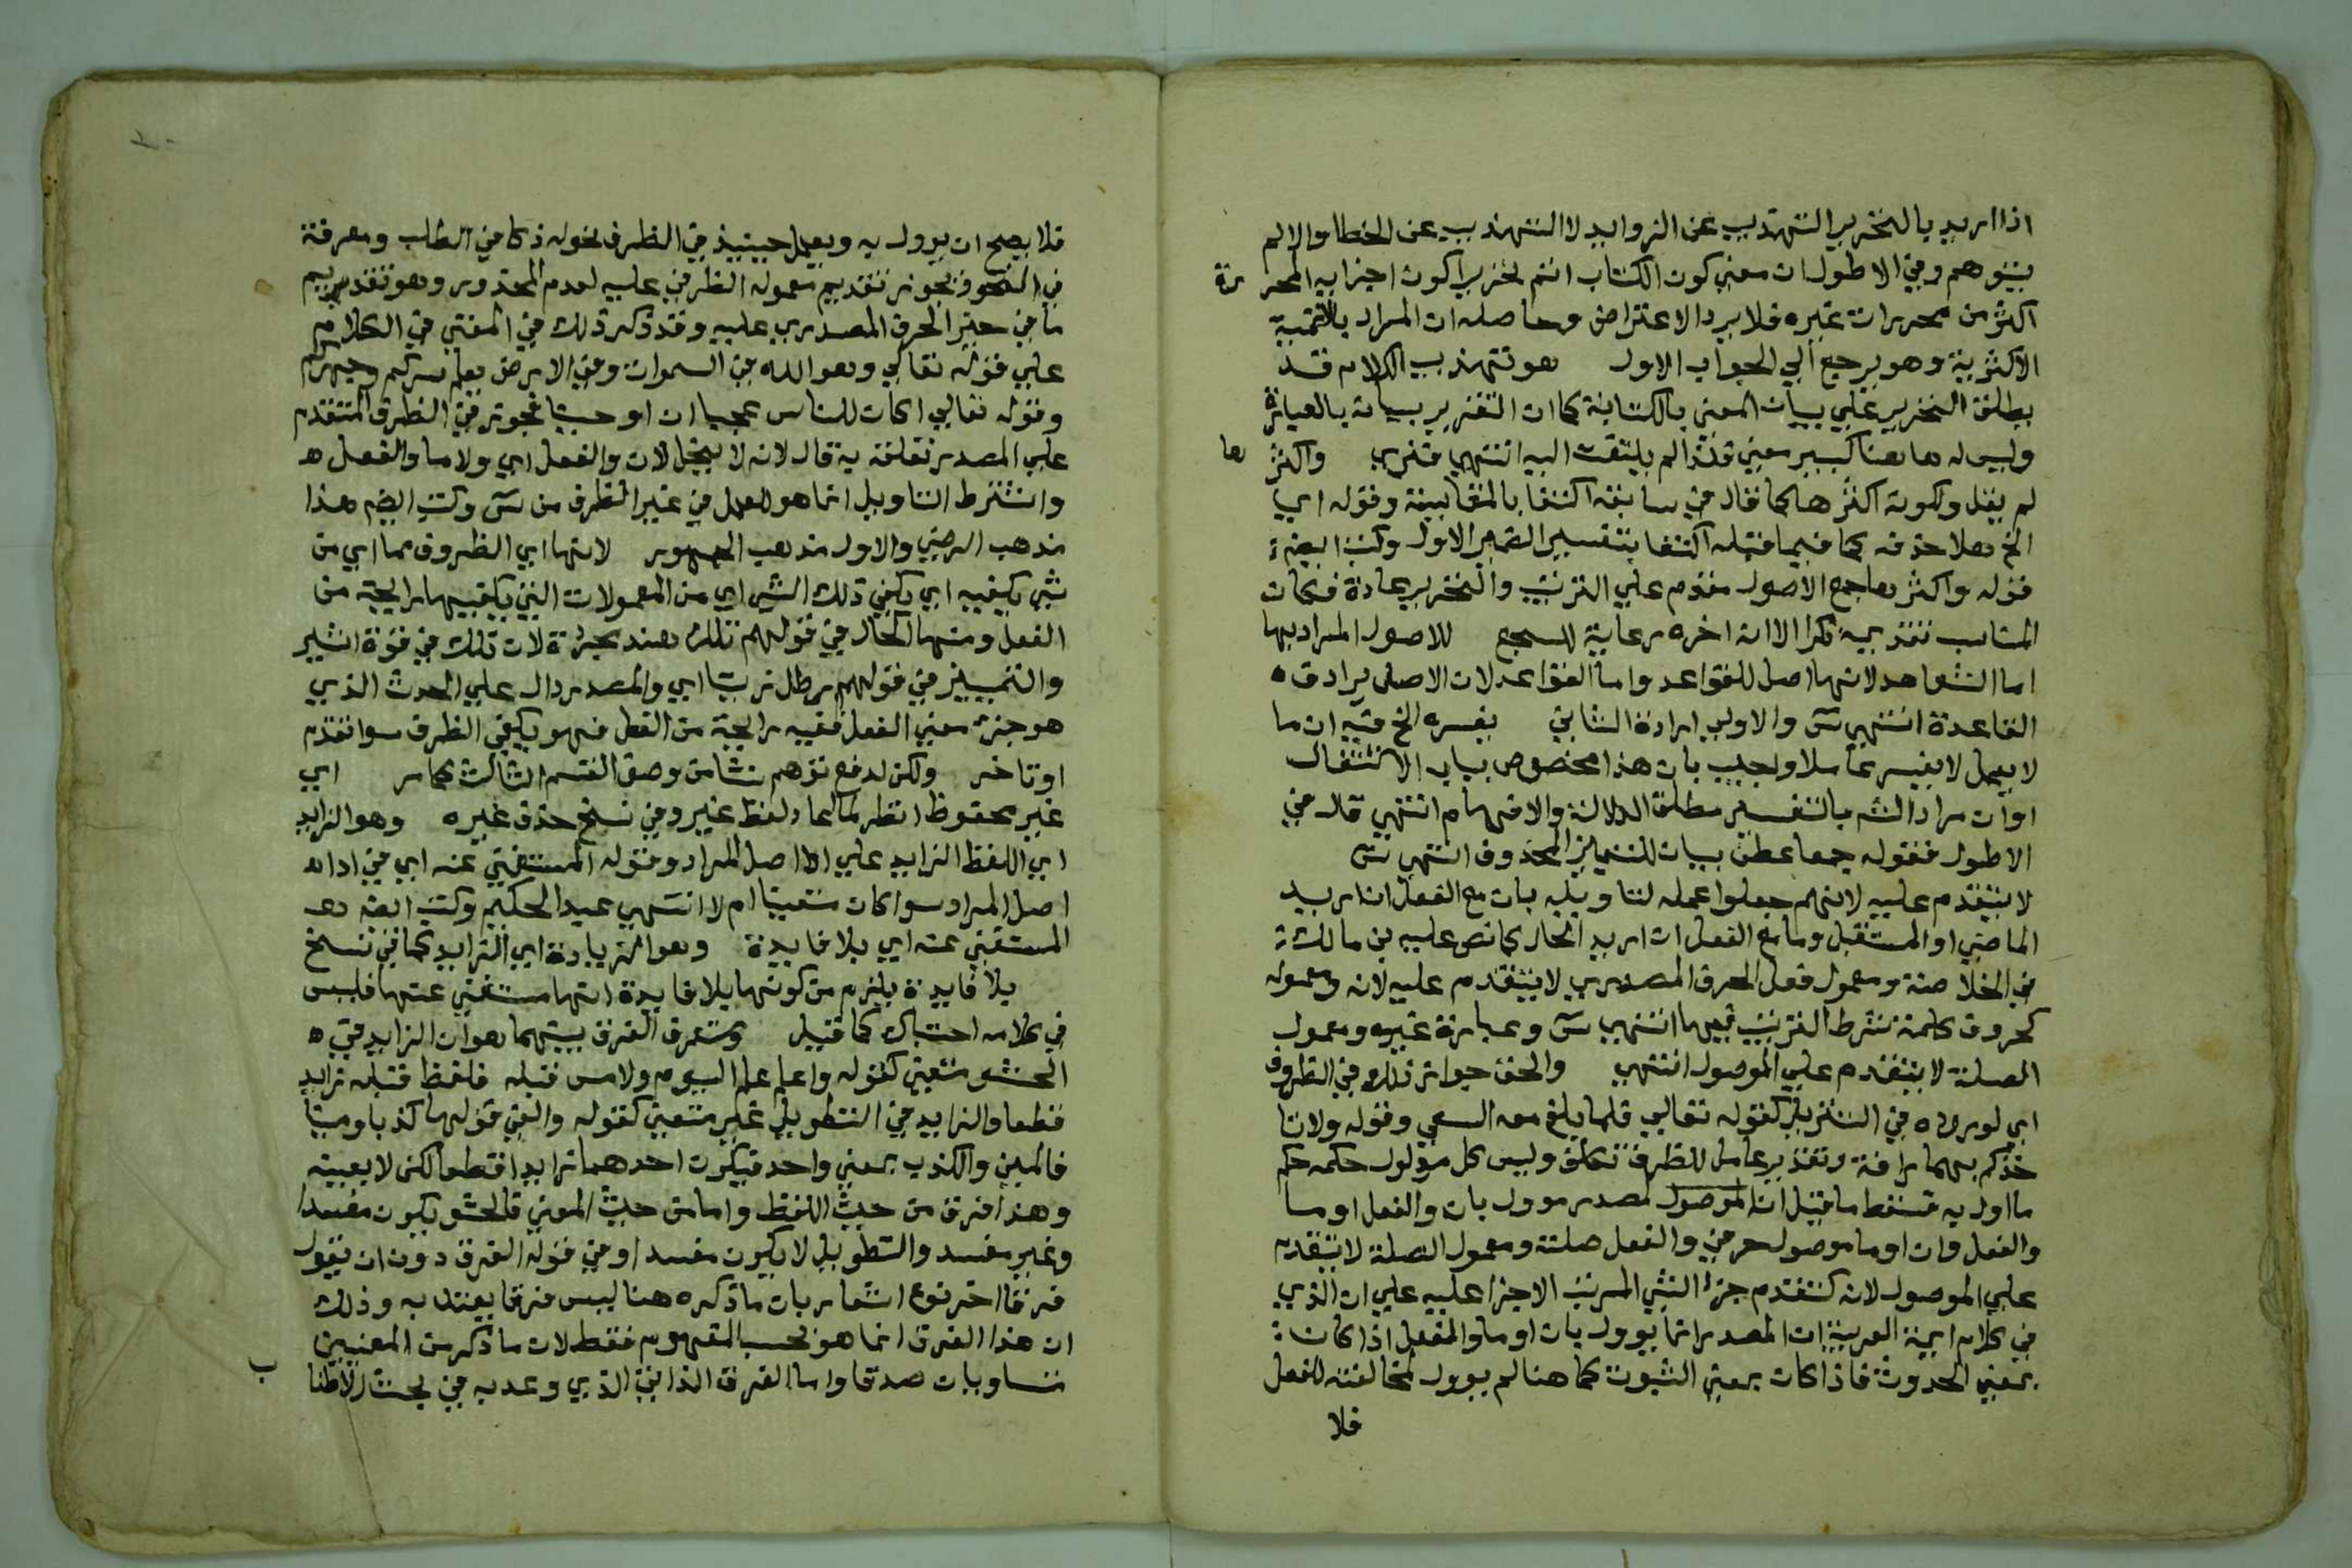 اذا اريد بالتحرير التهذيب عن الزوايد لا التهذيب عن الخطا والا لم
يتوهم وفي الاطول ان معني كون الكتاب اتم تحريرا كون اجزايه المحررة
اكثر من محررات غيره فلا يرد الاعتراض وحاصله ان المراد بالاتمية
الاكثرية وهو يرجع الي الجواب الاول هو تهذيب الكلام قد
يطلق التحرير علي بيان المعني بالكتابة كما ان التقرير بيانه بالعبارة
وليس له هاهنا كبير معني فلذا لم يلتفت اليه انتهي فنري واكثرها
لم يقل ولكونه اكثرها كما قال في سابقه اكتفا بالمقايسة وقوله اي
الخ هلا حذفه كما فيما قبله اكتفا بتفسير الضمير الاول وكتب ايضا
قوله واكثرها جمع الاصول مقدم علي الترتيب والتحرير عادة فكان
المناسب تقديمه ذكرا الا انه اخره رعاية للسجع للاصول المراد بها
اما الشواهد لانها اصل للقواعد واما القواعد لان الاصل يرادف
القاعدة انتهي س والاولي ارادة الثاني يفسره الخ فيه ان ما
لا يعمل لا يفسر عاملا واجيب بان هذا مخصوص بباب الاشتغال
او ان مراد الشم بالتفسير مطلق الدلالة والافهام انتهي قال في
الاطول فقوله جمعا عطف بيان للتمييز المحذوف انتهي س
لا يتقدم عليه لانهم جعلوا عمله لتاويله بان مع الفعل ان اريد
الماضي او المستقبل وما مع الفعل ان اريد الحال كما نص عليه بن مالك
في الخلاصة ومعمول فعل الحرف المصدري لا يتقدم عليه لانه ومعموله
كحروف كلمة شرط الترتيب فيها انتهي س وعبارة غيره ومعمول
الصلة لا يتقدم علي الموصول انتهي والحق جواز ذلك في الظروف
اي لوروده في التنزيل كقوله تعالي فلما بلغ معه السعي وقوله ولا تا
خذكم بهما رافة وتقدير عامل للظرف تكلف وليس كل موول حكمه حكم
ما اول به فسقط ما قيل ان الموصول المصدر موول بان والفعل او ما
والفعل وان او ما موصول حرفي والفعل صلته ومعمول الصلة لا يتقدم
علي الموصول لانه كتقدم جزء الشي المرتب الاجزا عليه علي ان الذي
في كلام ايمة العربية ان المصدر انما يوول بان او ما والفعل اذا كان
بمعني الحدوث فاذا كان بمعني الثبوت كما هنا لم يوول لمخالفته للفعل
فلا
فلا يصح ان يوول به ويعمل حينيذ في الظرف نحوله ذكا في الطلب ومعرفة
في النحو فيجوز تقديم معموله الظرفي عليه لعدم المحذور وهو تقديم
ما في حيز الحرف المصدري عليه وقد ذكر ذلك في المغني في الكلام
علي قوله تعالي وهو الله في السموات وفي الارض يعلم سركم وجهركم
وقوله تعالي اكان للناس عجبا ان اوحينا فجوز في الظرف المتقدم
علي المصدر تعلقه به قال لانه لا ينحل لان والفعل اي ولا ما والفعل
واشترط التاويل انما هو للعمل في غير الظرف من س وكتب ايضا هذا
مذهب الرضي والاول مذهب الجمهور لانها اي الظروف مما اي من
شي يكفيه اي يكفي ذلك الشي اي من المعمولات التي يكفيها رايحة من
الفعل ومنها الحال في قولهم تلك هند مجردة لان تلك في قوة اشير
والتمييز في قولهم رطل زيتا اي والمصدر دال علي الحدث الذي
هو جزء معني الفعل ففيه رايحة من الفعل فهو يكفي الظرف سوا تقدم
او تاخر ولكن لدفع توهم نشا من وصف القسم الثالث كما مر اي
غير محفوظ انظر لما اعاد لفظ غير وفي نسخ حذف غيره وهو الزايد
اي اللفظ الزايد علي اصل المراد وقوله المستغني عنه اي في اداء
اصل المراد سوا كان متعينا ام لا انتهي عبد الحكيم وكتب ايضا
المستغني عنه اي بلا فايدة وهو الزيادة اي الزايد كما في نسخ
بلا فايدة يلزم من كونها بلا فايدة انها مستغني عنها فليس
في كلامه احتباك كما قيل وستعرف الفرق بينهما هو ان الزايد في
الحشو متعين كقوله واعلم علم اليوم والامس قبله فلفظ قبله زايد
قطعا والزايد في التطويل غير متعين كقوله والفي قولها كذبا ومينا
فالمين والكذب بمعني واحد فيكون احدهما زايدا قطعا لكن لا بعينه
وهذا فرق من حيث اللفظ واما من حيث المعني فالحشو يكون مفسدا
وغير مفسد والتطويل لا يكون مفسدا وفي قوله الفرق دون ان يقول
فرقا اخر نوع اشعار بان ما ذكره هنا ليس فرقا يعتد به وذلك
ان هذا الفرق انما هو بحسب المفهوم فقط لان ما ذكر من المعنيين
متساويان صدقا واما الفرق الذاتي الذي وعد به في بحث الاطناب